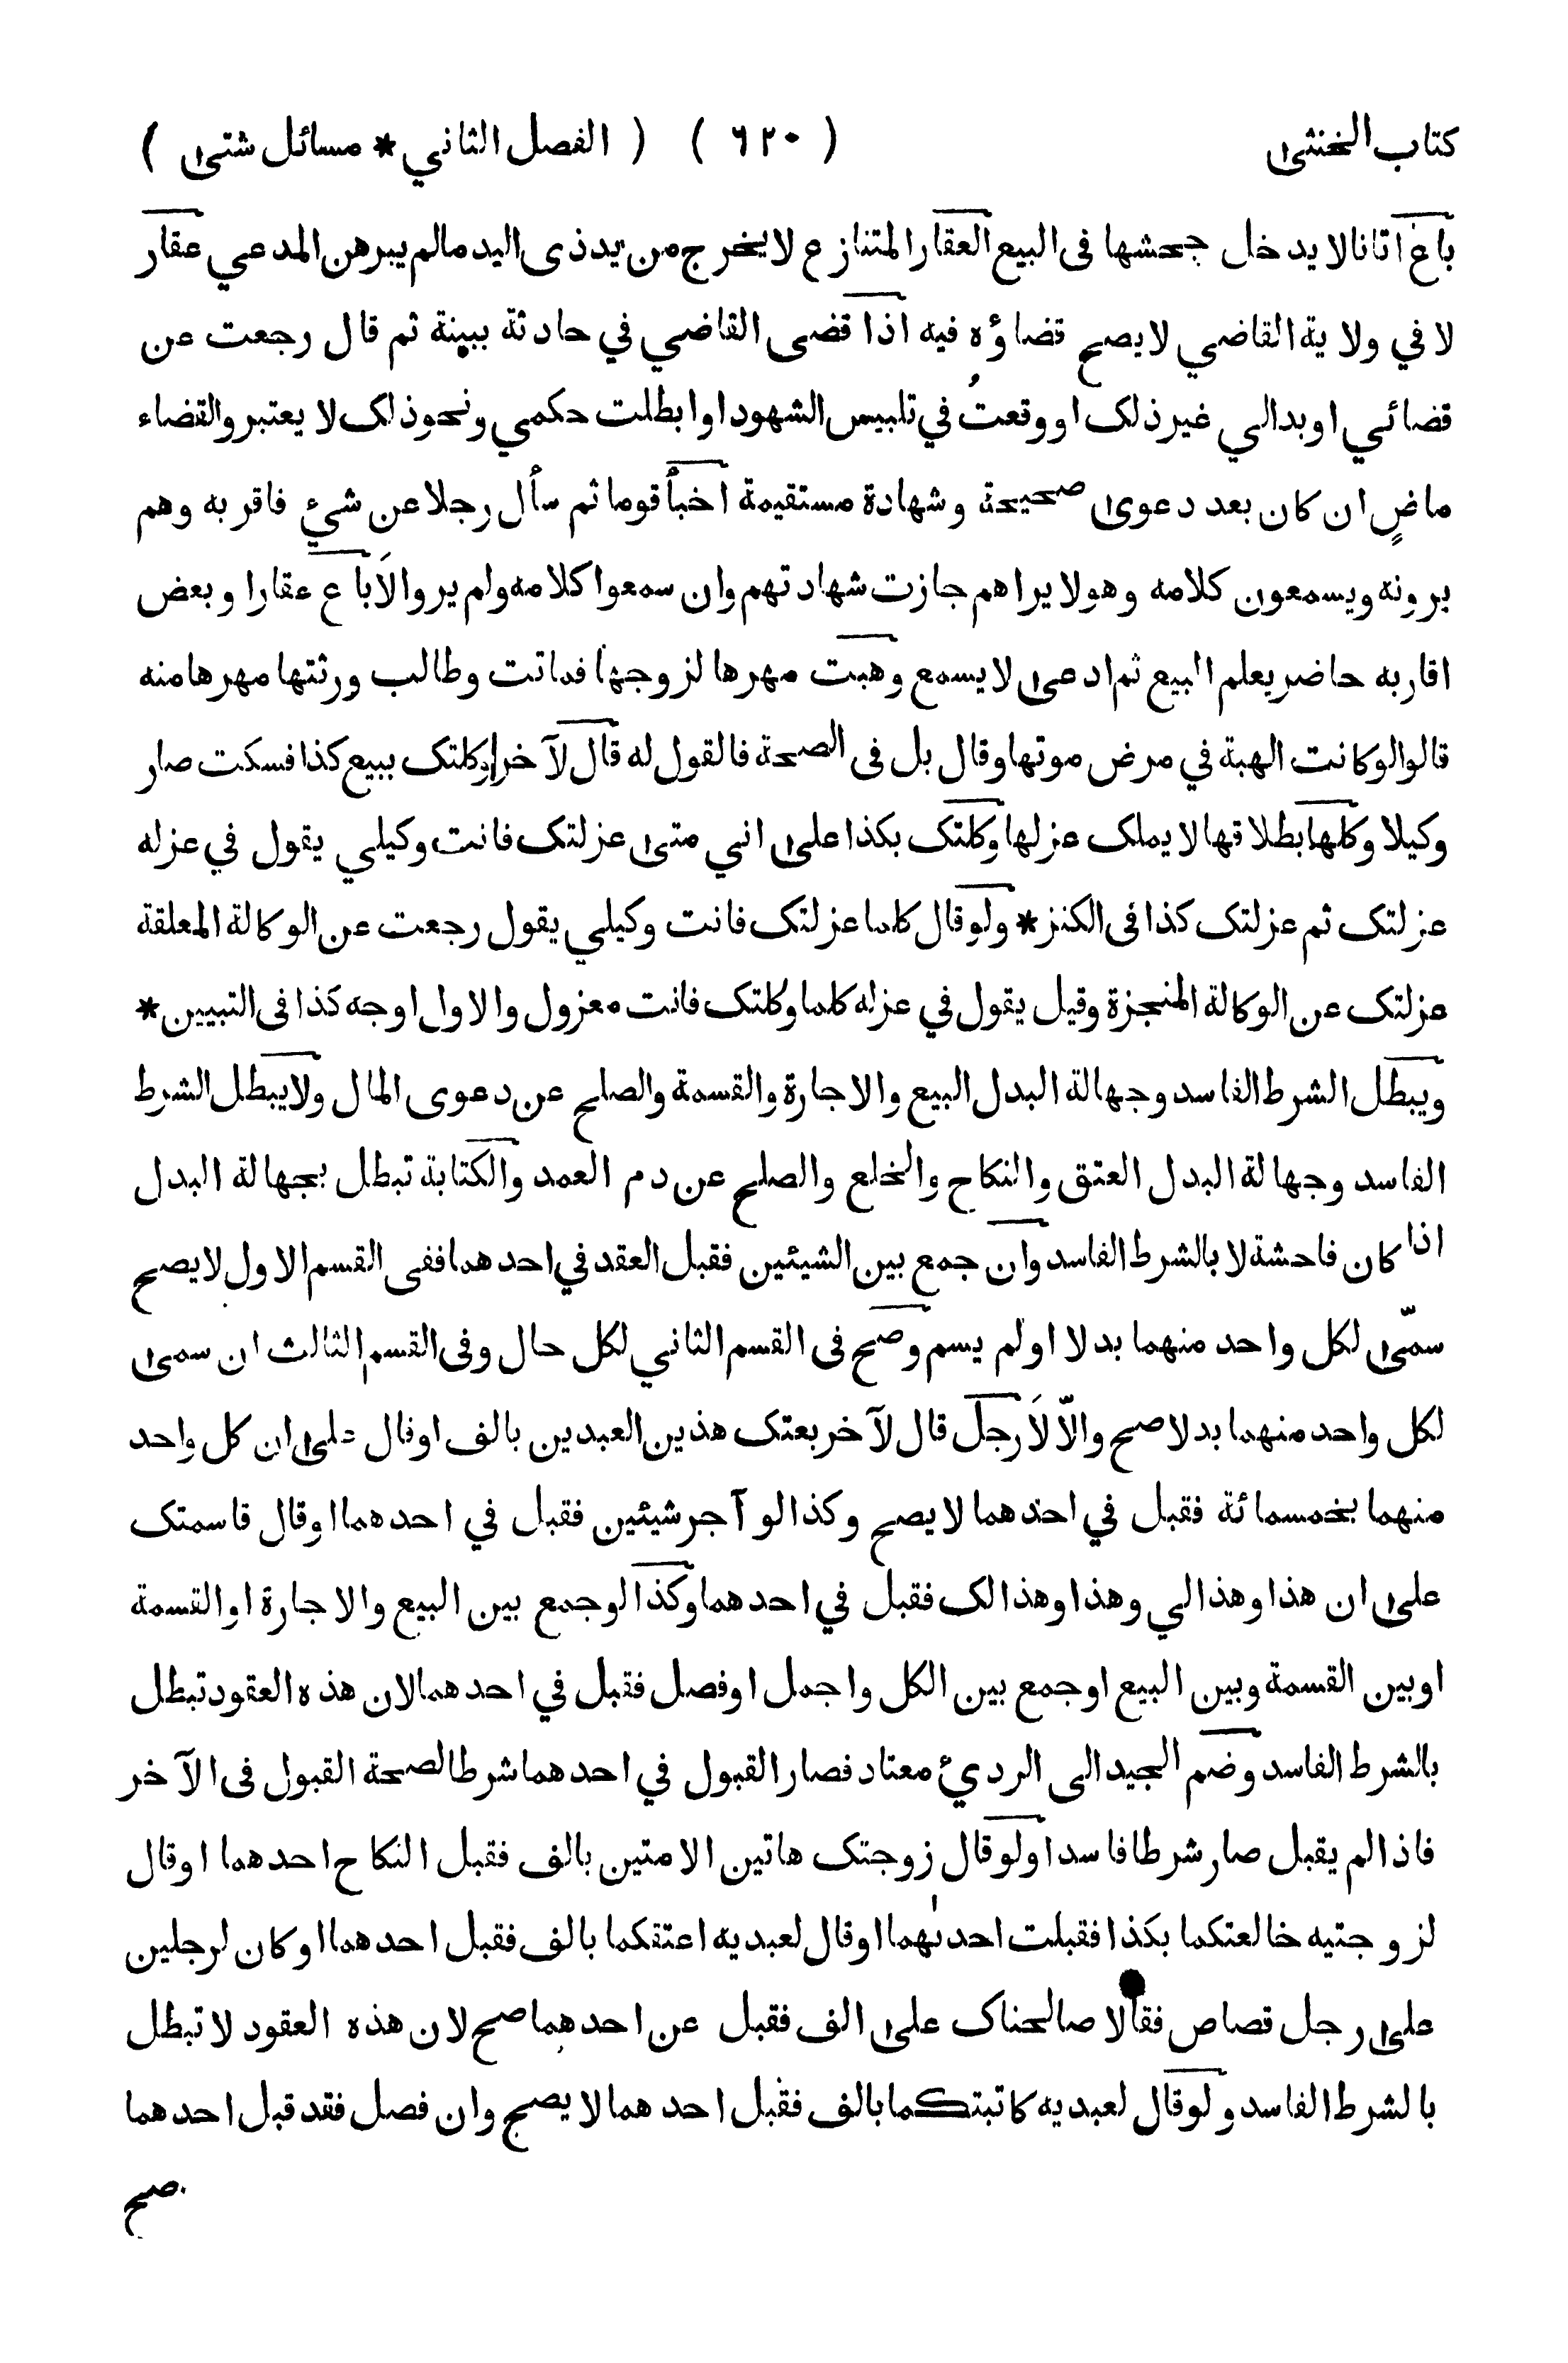 كتاب الخنثى ( ٦٢٠ ) ( الفصل الثاني * مسائل شتى )
باع اتانا لا يدخل جحشها فى البيع العقار المتنازع لا يخرج من يد ذى اليد ما لم يبرهن المدعي عقار
لا في ولاية القاضي لا يصح قضاؤه فيه اذا قضى القاضي في حادثة ببينة ثم قال رجعت عن
قضائي او بدالي غير ذلك او وقعتُ في تلبيس الشهود او ابطلت حكمي ونحو ذلك لا يعتبر والقضاء
ماضٍ ان كان بعد دعوى صحيحة وشهادة مستقيمة اخبأ قوما ثم سأل رجلا عن شيء فاقر به وهم
يرونه ويسمعون كلامه وهو لا يراهم جازت شهادتهم وان سمعوا كلامه ولم يروا لاَ باع عقارا وبعض
اقاربه حاضر يعلم البيع ثم ادعى لا يسمع وهبت مهرها لزوجها فماتت وطالب ورثتها مهرها منه
قالوا لو كانت الهبة في مرض موتها وقال بل فى الصحة فالقول له قال لآخر وكلتك ببيع كذا فسكت صار
وكيلا وكلها بطلاقها لا يملك عزلها وكلتك بكذا على اني متى عزلتك فانت وكيلي يقول في عزله
عزلتك ثم عزلتك كذا فى الكنز * ولو قال كلما عزلتك فانت وكيلي يقول رجعت عن الوكالة المعلقة
عزلتك عن الوكالة المنجزة وقيل يقول في عزله كلما وكلتك فانت معزول والاول اوجه كذا فى التبيين *
ويبطل الشرط الفاسد وجهالة البدل البيع والاجارة والقسمة والصلح عن دعوى المال ولا يبطل الشرط
الفاسد وجهالة البدل العتق والنكاح والخلع والصلح عن دم العمد والكتابة تبطل بجهالة البدل
اذا كان فاحشة لا بالشرط الفاسد وان جمع بين الشيئين فقبل العقد في احدهما ففى القسم الاول لا يصح
سمّى لكل واحد منهما بدلا او لم يسم وصح فى القسم الثاني لكل حال وفى القسم الثالث ان سمى
لكل واحد منهما بدلا صح والاّ لاَ رجل قال لآخر بعتك هذين العبدين بالف او قال على ان كل واحد
منهما بخمسمائة فقبل في احدهما لا يصح وكذا لو آجر شيئين فقبل في احدهما او قال قاسمتك
على ان هذا وهذا لي وهذا وهذا لك فقبل في احدهما وكذا لو جمع بين البيع والاجارة او القسمة
او بين القسمة وبين البيع او جمع بين الكل واجمل او فصل فقبل في احدهما لان هذه العقود تبطل
بالشرط الفاسد وضم الجيد الى الرديء معتاد فصار القبول في احدهما شرطا لصحة القبول فى الآخر
فاذا لم يقبل صار شرطا فاسدا ولو قال زوجتك هاتين الامتين بالف فقبل النكاح احدهما او قال
لزوجتيه خالعتكما بكذا فقبلت احدىٰهما او قال لعبديه اعتقكما بالف فقبل احدهما او كان لرجلين
على رجل قصاص فقالا صالحناك على الف فقبل عن احدهما صح لان هذه العقود لا تبطل
بالشرط الفاسد ولو قال لعبديه كاتبتكما بالف فقبل احدهما لا يصح وان فصل فقد قبل احدهما
صح